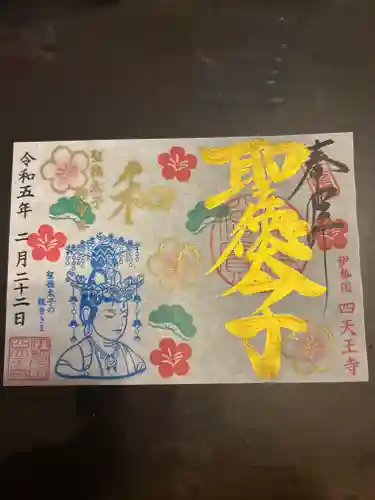 奉拝
聖徳太子
伊勢国 四天王寺
和
聖徳太子
聖徳太子の
観音さま
令和五年 二月二十二日